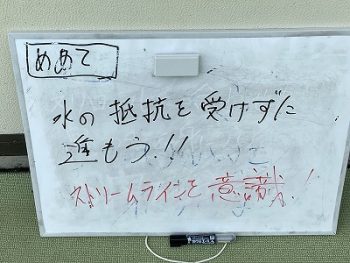 めあて
水の抵抗を受けずに
進もう!!
ストリームラインを意識!